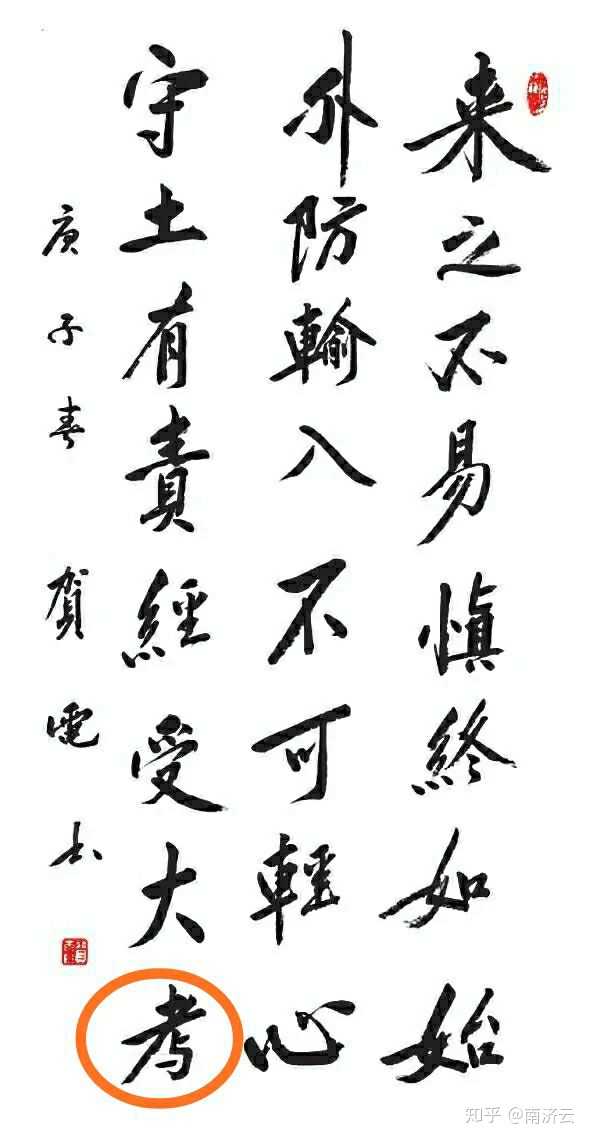 来之不易慎終如始
外防輸入不可輕心
守土有責經受大考
庚子春 賀電书
知乎 @南济云